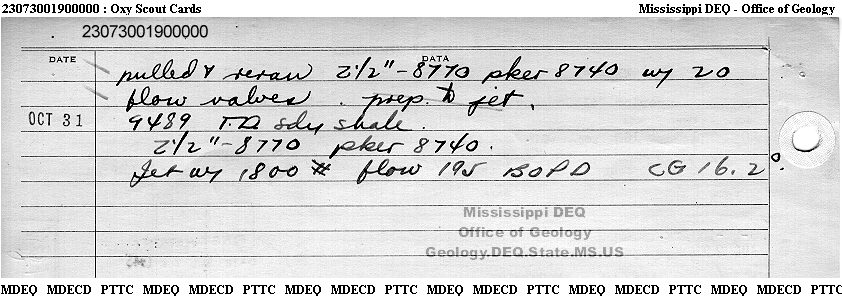 23073001900000 : Oxy Scout Cards Mississippi DEQ - Office of Geology
23073001900000
DATE DATA
pulled & reran 2 1/2" - 8770 pker 8740 w/ 20
flow valves. prep. to jet.
OCT 31 9489 T.D. sdy shale.
2 1/2" - 8770 pker 8740.
Jet w/ 1800 # flow 195 BOPD CG 16.2°.
Mississippi DEQ
Office of Geology
Geology.DEQ.State.MS.US
MDEQ MDECD PTTC MDEQ MDECD PTTC MDEQ MDECD PTTC MDEQ MDECD PTTC MDEQ MDECD PTTC MDEQ MDECD PTTC